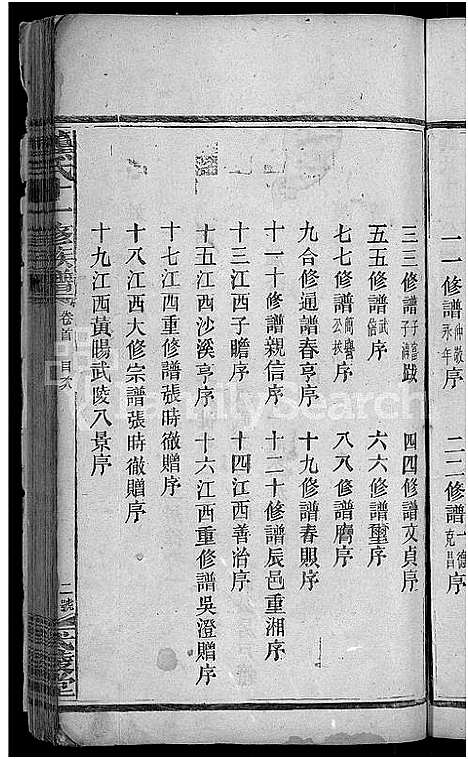 一一修譜仲敬永年 二二修譜一德克昌
三三修譜子 跋 四四修譜文貞序
五五修譜武 序 六六修譜璽序
七七修譜 序 八八修譜膺序
九合修通譜春亨序 十九修譜春賜序
十一十修譜親信序 十二十修譜辰邑重湘序
十三江西子瞻序 十四江西善治序
十五江西沙溪亨序 十六江西重修譜吳澄贈序
十七江西重修譜張時徹贈序
十八江西大修宗譜張時徹贈序
十九江西黃暘武陵八景序
氏十一修族譜 卷首 目次 二
FamilySearch